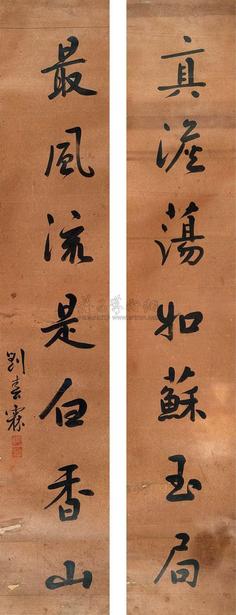 真澹蕩如蘇玉局
最風流是白香山
劉春霖